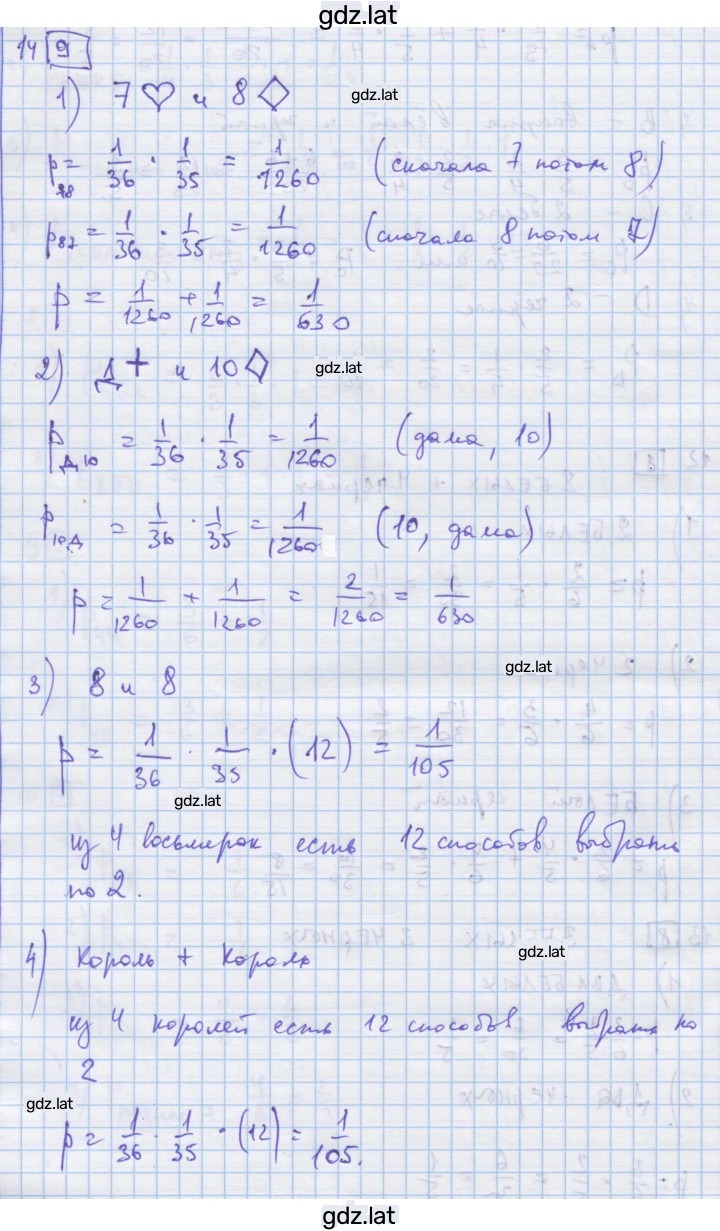 gdz.lat
14 9
1) 7 ♡ и 8 ◇
gdz.lat
p₇₈ = 1/36 · 1/35 = 1/1260 (сначала 7 потом 8)
p₈₇ = 1/36 · 1/35 = 1/1260 (сначала 8 потом 7)
p = 1/1260 + 1/1260 = 1/630
2) Д + и 10 ◇
gdz.lat
p Д10 = 1/36 · 1/35 = 1/1260 (дама, 10)
p 10Д = 1/36 · 1/35 = 1/1260 (10, дама)
p = 1/1260 + 1/1260 = 2/1260 = 1/630
gdz.lat
3) 8 и 8
p = 1/36 · 1/35 · (12) = 1/105
gdz.lat
из 4 восьмерок есть 12 способов выбрать
по 2.
4) Король + Король
gdz.lat
из 4 королей есть 12 способов выбрать по
2
gdz.lat
p = 1/36 · 1/35 · (12) = 1/105.
gdz.lat